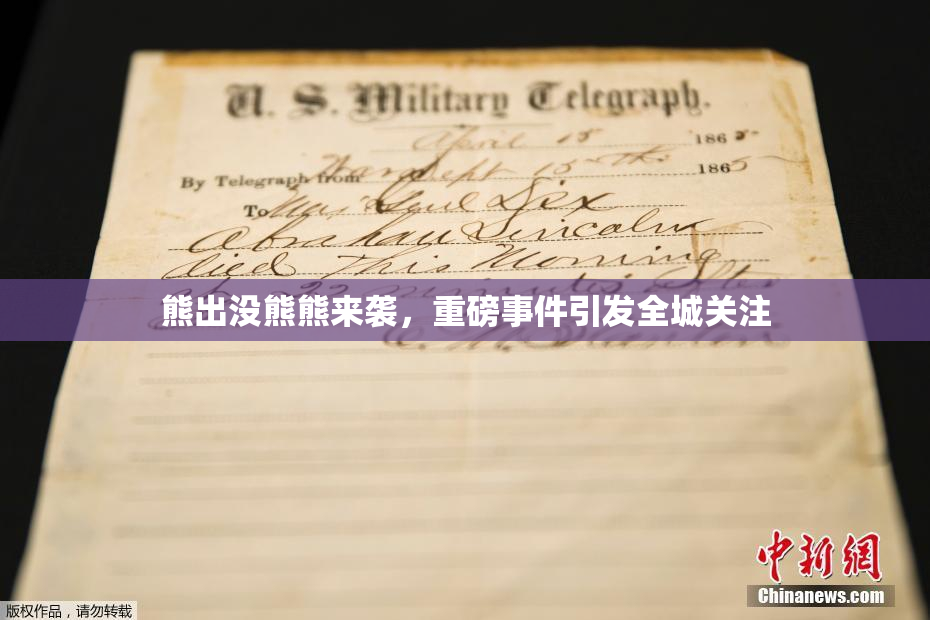 U. S. Military Telegraph.
April 15 1865
By Telegraph from War Dept 15th 1865
To Maj Genl Dix
Abraham Lincoln
died This Morning
at 22 minutes after
熊出没熊熊来袭，重磅事件引发全城关注
E. M. Stanton
中新网
Chinanews.com
版权作品，请勿转载